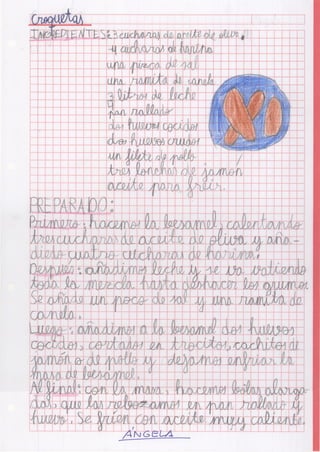 Croquetas
INGREDIENTES: 3 cucharas de aceite de oliva.
4 cucharas de harina
una pizca de sal
una ramita de canela
3 litros de leche
pan rallado
dos huevos cocidos
dos huevos crudos
un filete de pollo
tres lonchas de jamón
aceite para freir.
PREPARADO:
Primero: hacemos la besamel, calentando
tres cucharas de aceite de oliva y aña-
diedo cuatro cucharas de harina.
Después: añadimos leche y se va vatiendo
toda la mezcla hasta deshacer los grumos
Se añade un poco de sal y una ramita de
canela.
Luego: añadimos a la besamel dos huevos
cocidos, cortados en trocitos, cachitos de
jamón o de pollo y dejamos enfriar la
masa de besamel.
Al final: con la masa, hacemos bolas alarga-
das, que las rebozamos en pan rallado y
huevo. Se fríen con aceite muy caliente.
ÁNGELA